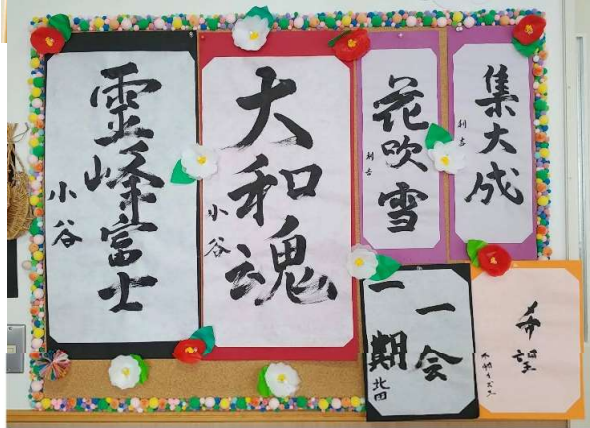 霊峰富士
小谷
大和魂
小谷
花吹雪
利吉
集大成
利吉
一期
一会
北田
希望